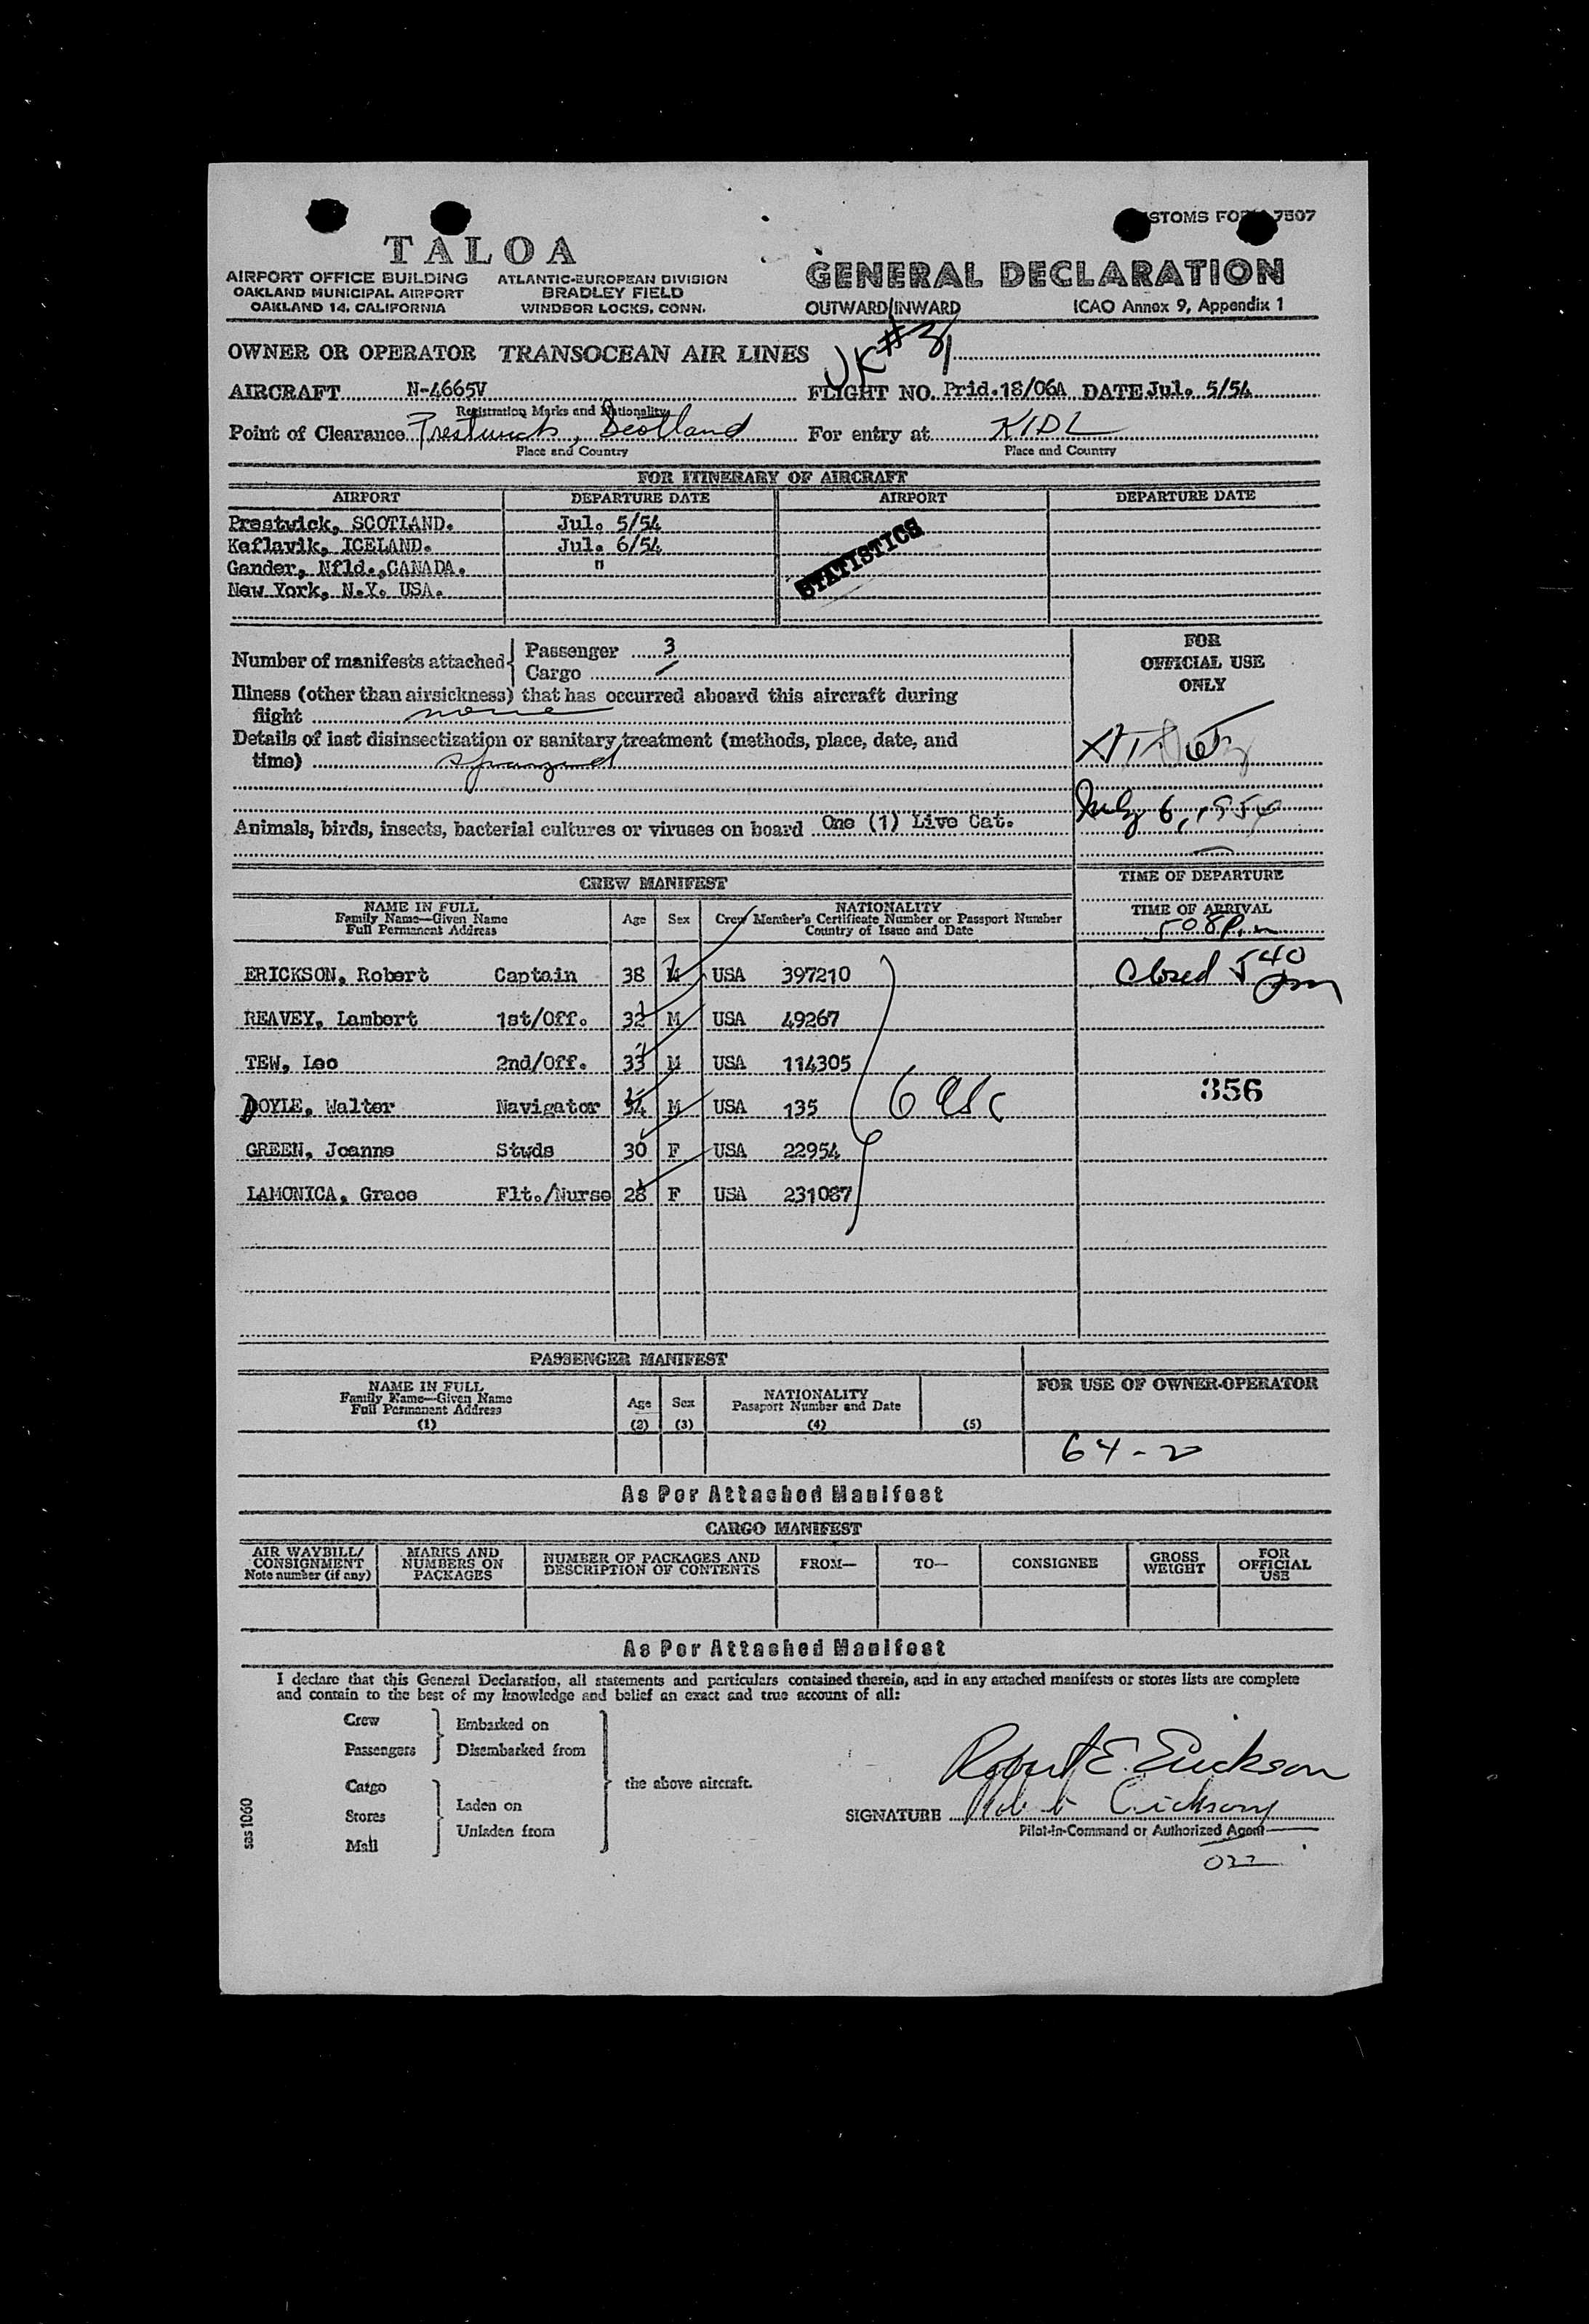 CUSTOMS FORM 7507
TALOA
AIRPORT OFFICE BUILDING
OAKLAND MUNICIPAL AIRPORT
OAKLAND 14, CALIFORNIA
ATLANTIC-EUROPEAN DIVISION
BRADLEY FIELD
WINDSOR LOCKS, CONN.
GENERAL DECLARATION
OUTWARD/INWARD ICAO Annex 9, Appendix 1
OWNER OR OPERATOR TRANSOCEAN AIR LINES
AIRCRAFT N-4665V FLIGHT NO. Prid.18/06A DATE Jul. 5/54
Registration Marks and Nationality
Point of Clearance Prestwick, Scotland For entry at KIDL
Place and Country Place and Country
FOR ITINERARY OF AIRCRAFT
AIRPORT DEPARTURE DATE AIRPORT DEPARTURE DATE
Prestwick, SCOTLAND. Jul. 5/54
Keflavik, ICELAND. Jul. 6/54
Gander, Nfld.,CANADA. "
New York, N.Y. USA.
STATISTICS
Number of manifests attached
Passenger 3
Cargo /
FOR
OFFICIAL USE
ONLY
Illness (other than airsickness) that has occurred aboard this aircraft during
flight none
Details of last disinsectization or sanitary treatment (methods, place, date, and
time)
July 6, 1954
Animals, birds, insects, bacterial cultures or viruses on board One (1) Live Cat.
CREW MANIFEST
TIME OF DEPARTURE
NAME IN FULL
Family Name—Given Name
Full Permanent Address
Age Sex
NATIONALITY
Crew Member's Certificate Number or Passport Number
Country of Issue and Date
TIME OF ARRIVAL
508 P.m
Closed 540 pm
ERICKSON, Robert Captain 38 M USA 397210
REAVEY, Lambert 1st/Off. 32 M USA 49267
TEW, Leo 2nd/Off. 33 M USA 114305
356
DOYLE, Walter Navigator 34 M USA 135
GREEN, Joanne Stwds 30 F USA 22954
LAMONICA, Grace Flt./Nurse 28 F USA 231087
PASSENGER MANIFEST
NAME IN FULL
Family Name—Given Name
Full Permanent Address
(1)
Age
(2)
Sex
(3)
NATIONALITY
Passport Number and Date
(4)
(5)
FOR USE OF OWNER-OPERATOR
64-2
As Per Attached Manifest
CARGO MANIFEST
AIR WAYBILL/
CONSIGNMENT
Note number (if any)
MARKS AND
NUMBERS ON
PACKAGES
NUMBER OF PACKAGES AND
DESCRIPTION OF CONTENTS
FROM—
TO—
CONSIGNEE
GROSS
WEIGHT
FOR
OFFICIAL
USE
As Per Attached Manifest
I declare that this General Declaration, all statements and particulars contained therein, and in any attached manifests or stores lists are complete
and contain to the best of my knowledge and belief an exact and true account of all:
Crew
Passengers
Embarked on
Disembarked from
Cargo
Stores
Mail
Laden on
Unladen from
the above aircraft.
Robert E. Erickson
SIGNATURE
Pilot-in-Command or Authorized Agent
022
sas 1060